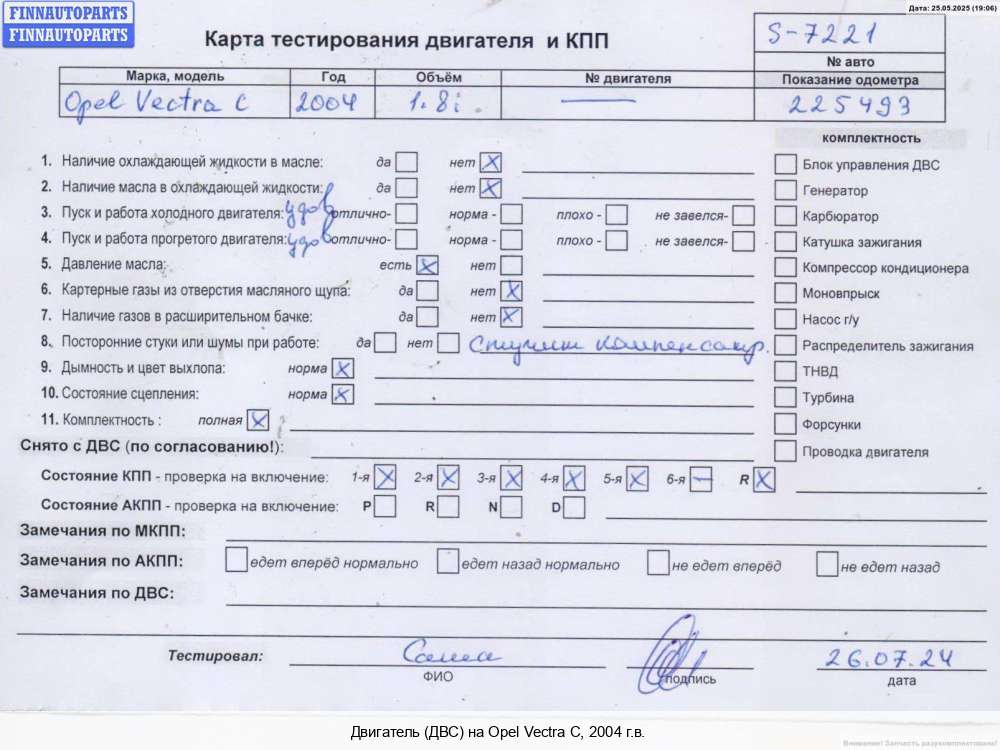 FINNAUTOPARTS
FINNAUTOPARTS
Дата: 25.05.2025 (19:06)
Карта тестирования двигателя и КПП
S-7221
№ авто
Марка, модель Год Объём № двигателя Показание одометра
Opel Vectra C 2004 1.8i — 225493
комплектность
1. Наличие охлаждающей жидкости в масле: да нет X
Блок управления ДВС
2. Наличие масла в охлаждающей жидкости: да нет X
Генератор
3. Пуск и работа холодного двигателя: удов отлично- норма - плохо - не завелся-
Карбюратор
4. Пуск и работа прогретого двигателя: удов отлично- норма - плохо - не завелся-
Катушка зажигания
5. Давление масла: есть X нет
Компрессор кондиционера
6. Картерные газы из отверстия масляного щупа: да нет X
Моновпрыск
7. Наличие газов в расширительном бачке: да нет X
Насос г/у
8. Посторонние стуки или шумы при работе: да нет Стучит компенсатр.
Распределитель зажигания
9. Дымность и цвет выхлопа: норма X
ТНВД
10. Состояние сцепления: норма X
Турбина
11. Комплектность : полная X
Форсунки
Снято с ДВС (по согласованию!):
Проводка двигателя
Состояние КПП - проверка на включение: 1-я X 2-я X 3-я X 4-я X 5-я X 6-я — R X
Состояние АКПП - проверка на включение: P R N D
Замечания по МКПП:
Замечания по АКПП: едет вперёд нормально едет назад нормально не едет вперёд не едет назад
Замечания по ДВС:
Тестировал: Саша 26.07.24
ФИО подпись дата
Двигатель (ДВС) на Opel Vectra C, 2004 г.в.
Внимание! Запчасть разукомплектована!